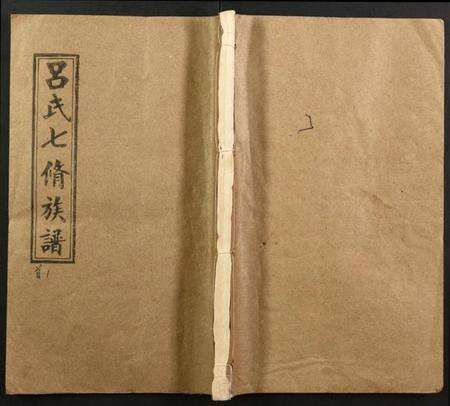 呂氏七脩族譜
首1